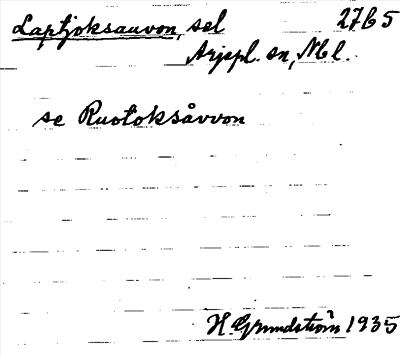 Laptjoksauvon, sel 27B5
Arjepl. sn, Nbl.
se Ruotoksåvvon
H. Grundström 1935